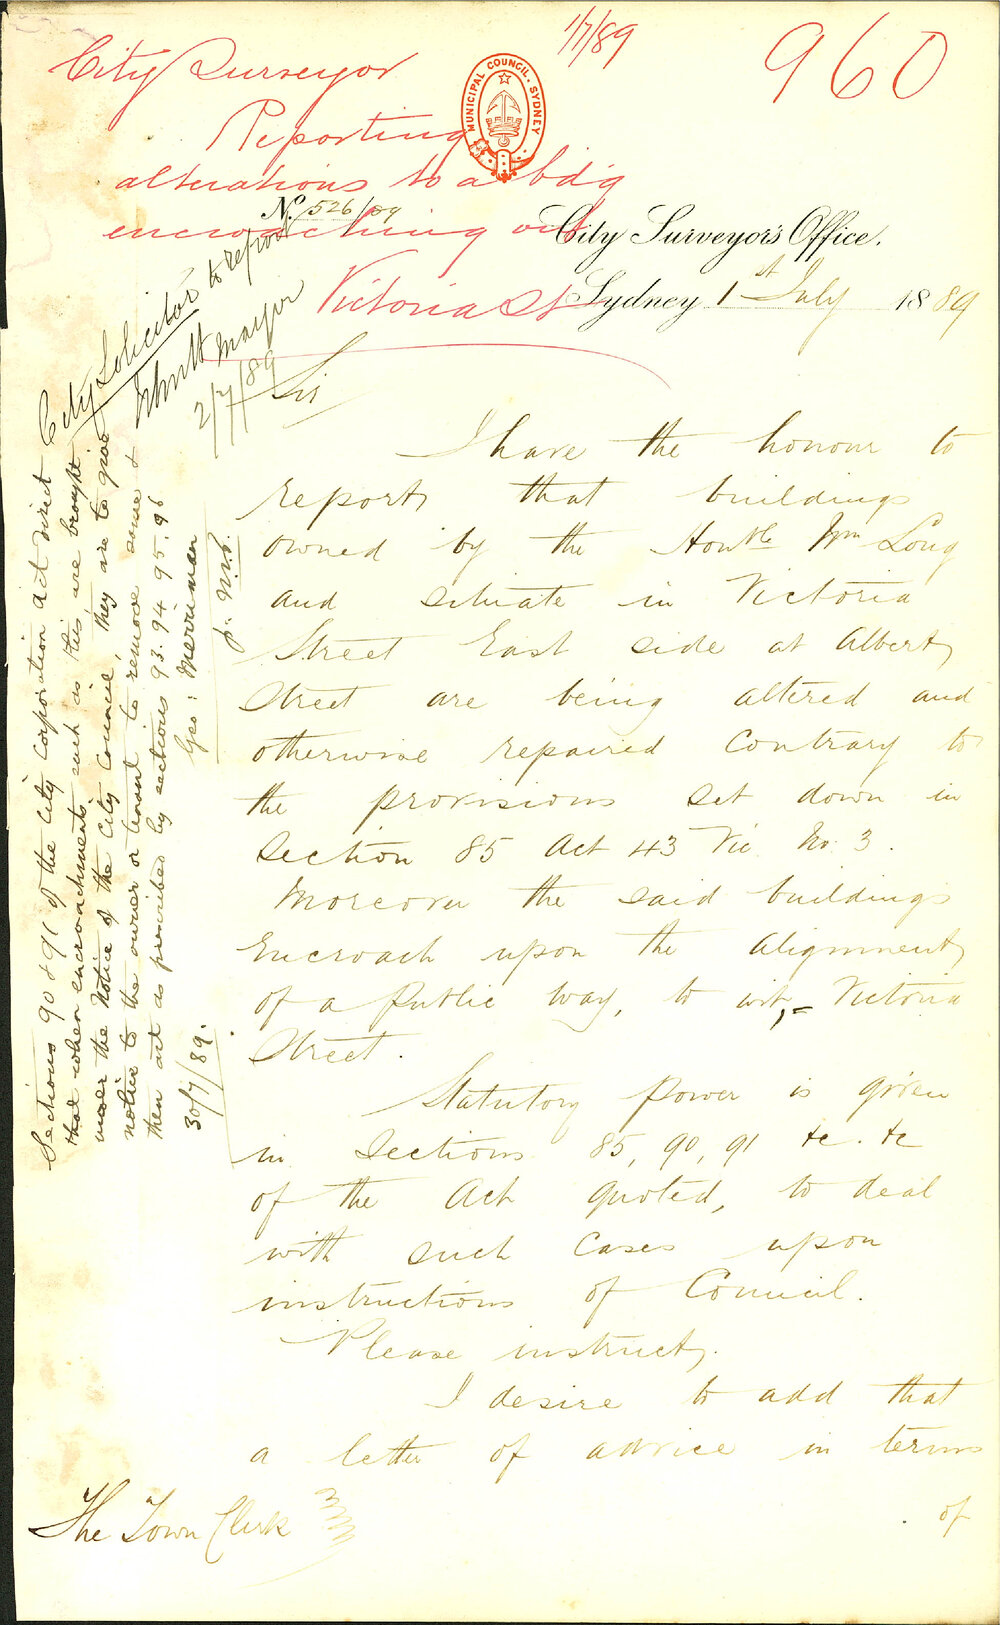 1/7/89
960
City Surveyor
Reporting
alterations to a bdg
encroaching on
Victoria St
MUNICIPAL COUNCIL. SYDNEY
No. 526/89
City Surveyor's Office.
Sydney 1st July 1889
City Solicitor to report
Mayor
2/7/89
Sir
I have the honour to
report that buildings
owned by the Honble Wm Long
and situate in Victoria
Street East side at Albert
Street are being altered and
otherwise repaired contrary to
the provisions set down in
Section 85 Act 43 Vic No. 3.
Moreover the said buildings
encroach upon the alignment
of a public way, to wit, – Victoria
Street.
Statutory power is given
in Sections 85, 90, 91 &c. &c
of the Act quoted, to deal
with such cases upon
instructions of Council.
Please instruct.
I desire to add that
a letter of advice in terms
of
The Town Clerk
Sections 90 & 91 of the City Corporation Act direct
that when encroachments such as this, are brought
under the Notice of the City Council, they are to give
notice to the owner or tenant to remove same &
then act as prescribed by sections 93. 94 95. 96
Geo: Merriman
30/7/89.